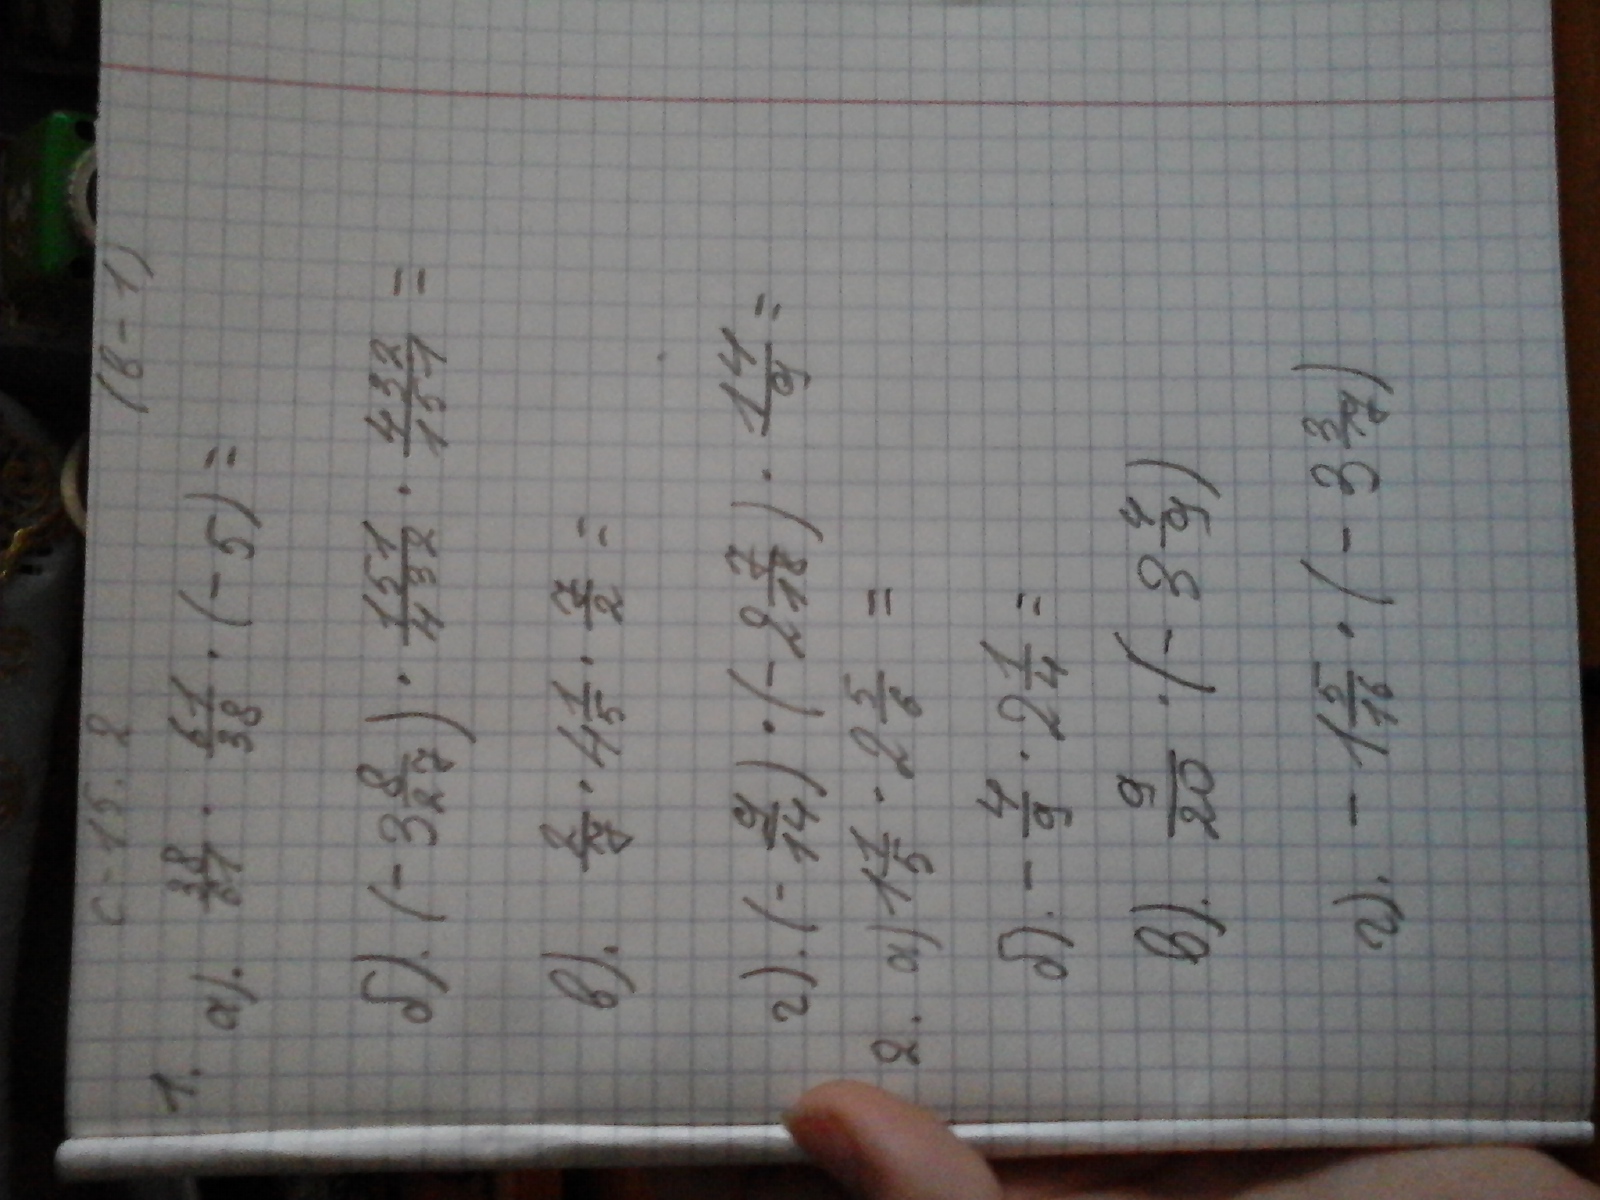 С-15.2 (В-1)
1.
а). 38/61 · 61/38 · (-5) =
б). (-3 8/27) · 151/432 · 432/151 =
в). 2/7 · 4 1/5 · 7/2 =
г). (-9/14) · (-2 7/18) · 1 4/9 =
2. а) 1 1/5 · 2 5/6 =
б). - 4/9 · 2 1/4 =
в). 9/20 · (- 3 4/9)
г). - 1 5/16 · (- 3 3/7)